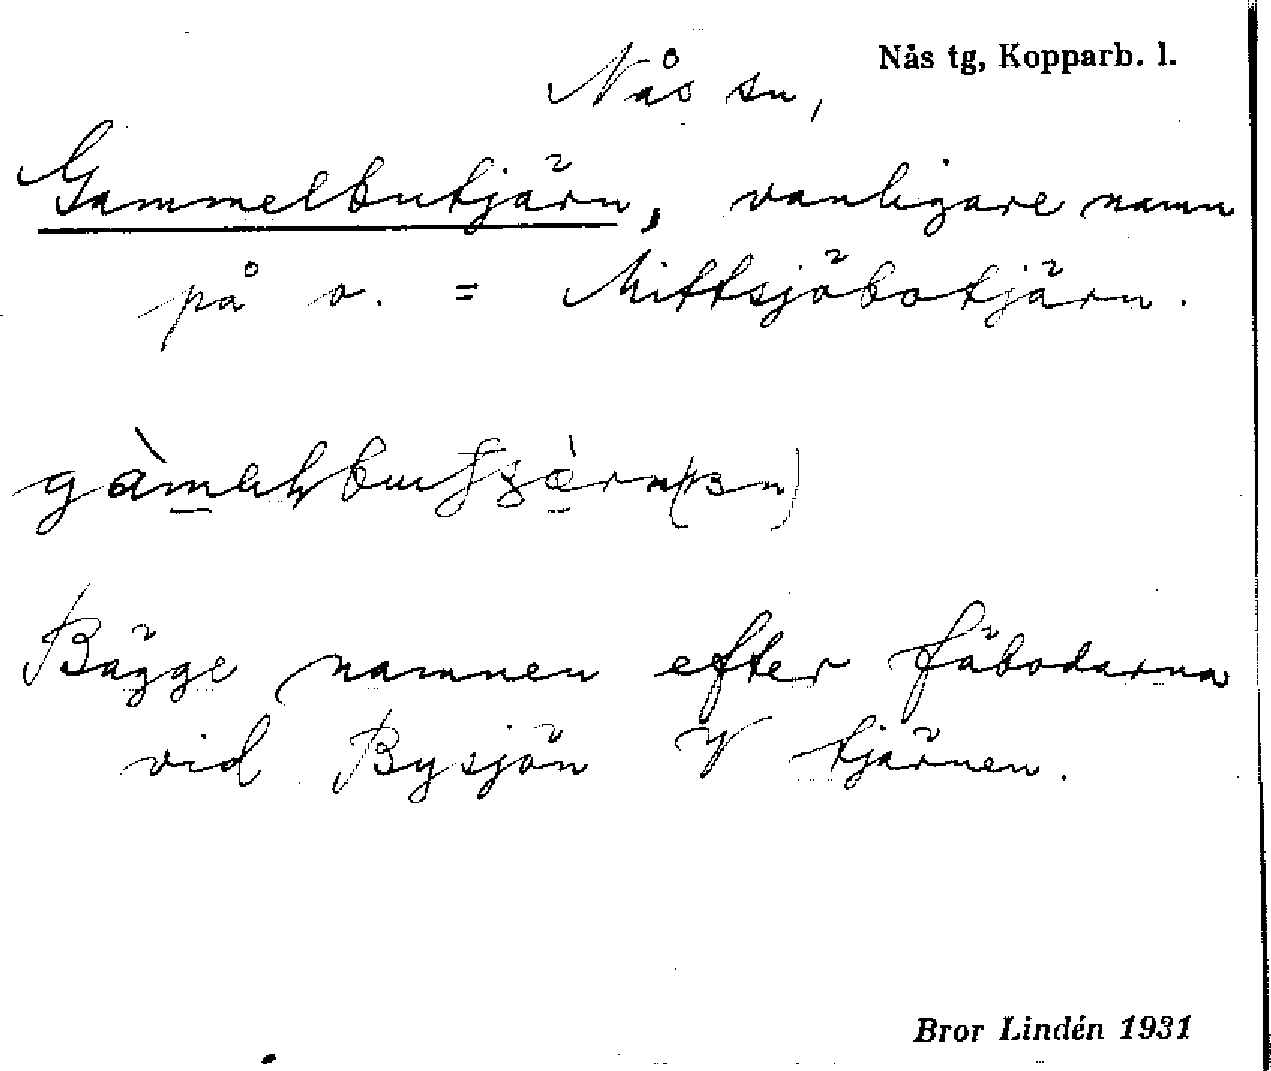 Nås tg, Kopparb. l.
Nås sn,
Gammelbutjärn, vanligare namn
på o. = Mittsjöbotjärn.
Bägge namnen efter fäbodarna
vid Bysjön V tjärnen.
Bror Lindén 1931